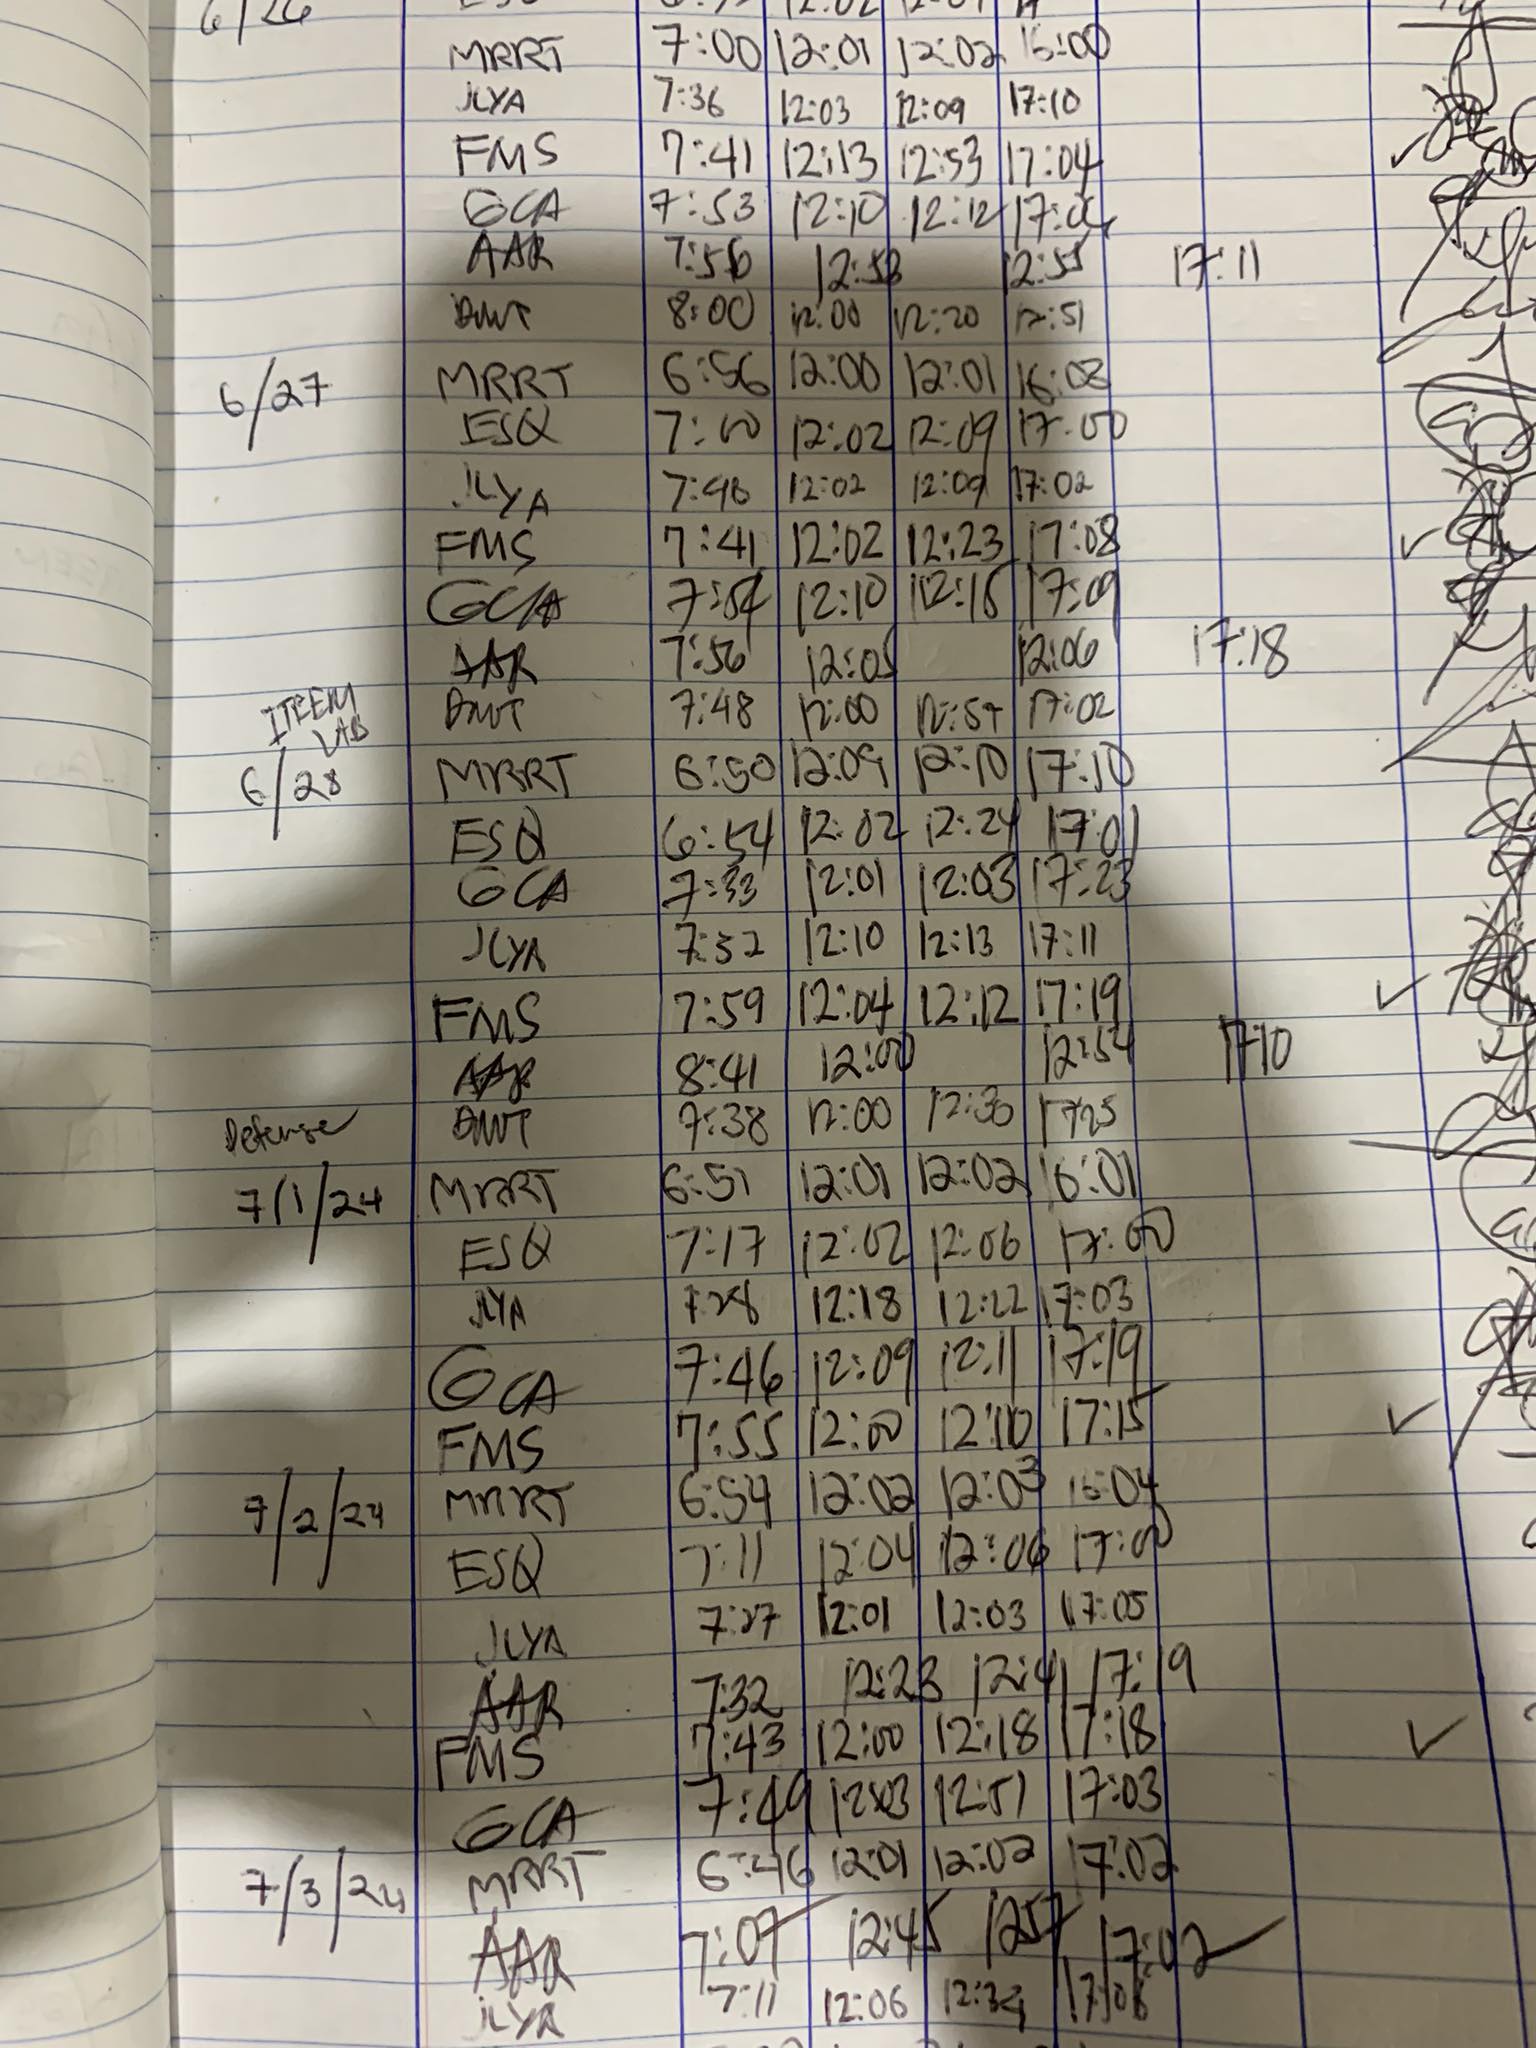 6/26 ESQ 12:02
MRRT 7:00 12:01 12:02 16:00
JLYA 7:36 12:03 12:09 17:10
FMS 7:41 12:13 12:53 17:04
GCA 7:53 12:10 12:12
AAR 7:56 12:53 12:55 17:11
DMT 8:00 12:00 12:20 17:51
6/27 MRRT 6:56 12:00 12:01 16:03
ESQ 7:00 12:02 12:09 17:00
JLYA 12:02 12:09 17:02
FMS 7:41 12:02 12:23 17:08
GCA 7:54 12:10 12:15 17:09
AAR 7:56 12:05 12:06 17:18
ITEEM LAB DMT 7:48 12:00 12:57 17:02
6/28 MRRT 6:50 12:09 12:10 17:10
ESQ 6:54 12:02 12:24 17:01
GCA 7:33 12:01 12:03 17:23
JLYA 7:32 12:10 12:13 17:11
FMS 7:59 12:04 12:12 17:19
AAR 8:41 12:00 12:54 1710
Defense DMT 7:38 12:00 12:30 1725
7/1/24 MRRT 6:51 12:01 12:02 16:01
ESQ 7:17 12:02 12:06 17:00
JLYA 7:28 12:18 12:22 17:03
GCA 7:46 12:09 12:11 17:19
FMS 7:55 12:00 12:10 17:15
7/2/24 MRRT 6:54 12:02 12:03 16:04
ESQ 7:11 12:04 12:06 17:00
JLYA 7:27 12:01 12:03 17:05
AAR 7:32 12:23 12:41 17:19
FMS 7:43 12:00 12:18 17:18
GCA 7:49 12:03 12:51 17:03
7/3/24 MRRT 6:46 12:01 12:02 17:02
AAR 7:07 12:45 1257 17:02
JLYA 7:11 12:06 12:34 17:08